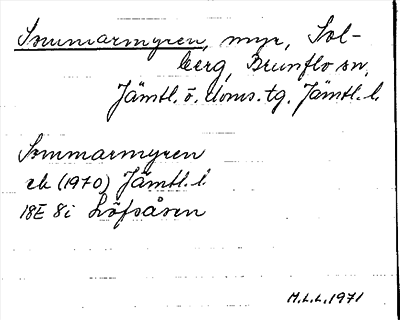 Sommarmyren, myr, Sol-
berg, Brunflo sn,
Jämtl. ö. doms. tg. Jämtl. l.
Sommarmyren
ek (1970) Jämtl. l.
18E 8i Löfsåsen
M.L.L. 1971